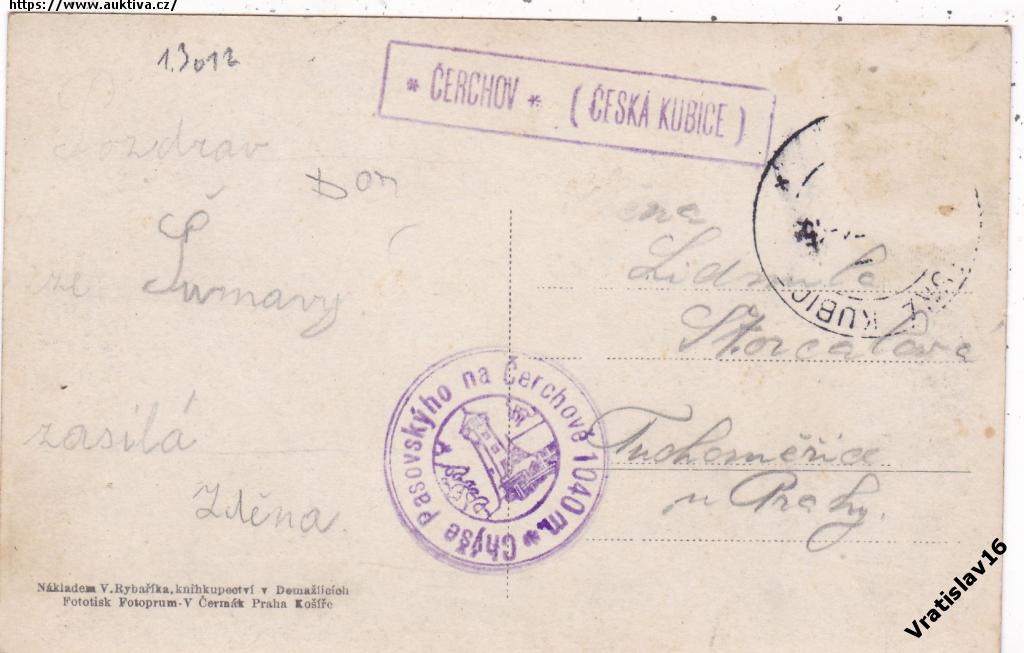 https://www.auktiva.cz/
1.3012
* ČERCHOV * ( ČESKÁ KUBICE )
Pozdrav
Dom
ze Šumavy
zasílá
Zděna
Lidmila
Tuchoměřice
u Prahy.
KUBICE
Chýše Pasovskýho na Čerchově 1040 m. *
Nákladem V. Rybaříka, knihkupectví v Domažlicích
Fototisk Fotoprum-V Čermák Praha Košíře
Vratislav16